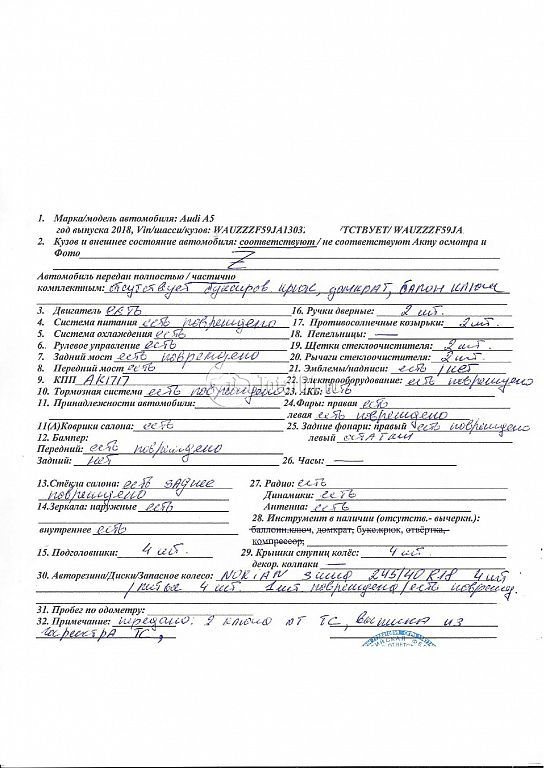 1. Марка/модель автомобиля: Audi A5
год выпуска 2018, Vin/шасси/кузов: WAUZZZF59JA1303. /ТСТВУЕТ/ WAUZZZF59JA
2. Кузов и внешнее состояние автомобиля: соответствуют / не соответствуют Акту осмотра и
Фото Z
Автомобиль передан полностью / частично
комплектным: отсутствует буксиров крюк, домкрат, балон ключ
3. Двигатель есть 16. Ручки дверные: 2 шт.
4. Система питания есть повреждено 17. Противосолнечные козырьки: 2 шт.
5. Система охлаждения есть 18. Пепельницы: —
6. Рулевое управление есть 19. Щетки стеклоочистителя: 2 шт.
7. Задний мост есть повреждено 20. Рычаги стеклоочистителя: 2 шт.
8. Передний мост есть 21. Эмблемы/надписи: есть / нет
9. КПП АКПП 22. Электрооборудование: есть повреждено
10. Тормозная система есть повреждено 23. АКБ: есть
11. Принадлежности автомобиля: 24. Фары: правая есть
левая есть повреждено
11(А)Коврики салона: есть 25. Задние фонари: правый есть повреждено
12. Бампер: левый
Передний: есть повреждено
Задний: нет 26. Часы: —
13.Стёкла салона: есть заднее 27. Радио: есть
повреждено Динамики: есть
14.Зеркала: наружные есть Антенна: есть
28. Инструмент в наличии (отсутств.- вычеркн.):
внутреннее есть баллонн.ключ, домкрат, букс.крюк, отвёртка,
компрессор,
15. Подголовники: 4 шт. 29. Крышки ступиц колёс: 4 шт.
декор. колпаки —
30. Авторезина/Диски/Запасное колесо: зима 245/40 R18 4 шт
/ литые 4 шт 1 шт повреждено / есть поврежд.
31. Пробег по одометру:
32. Примечание: передано: 2 ключа от ТС, выписка из
реестра ТС,